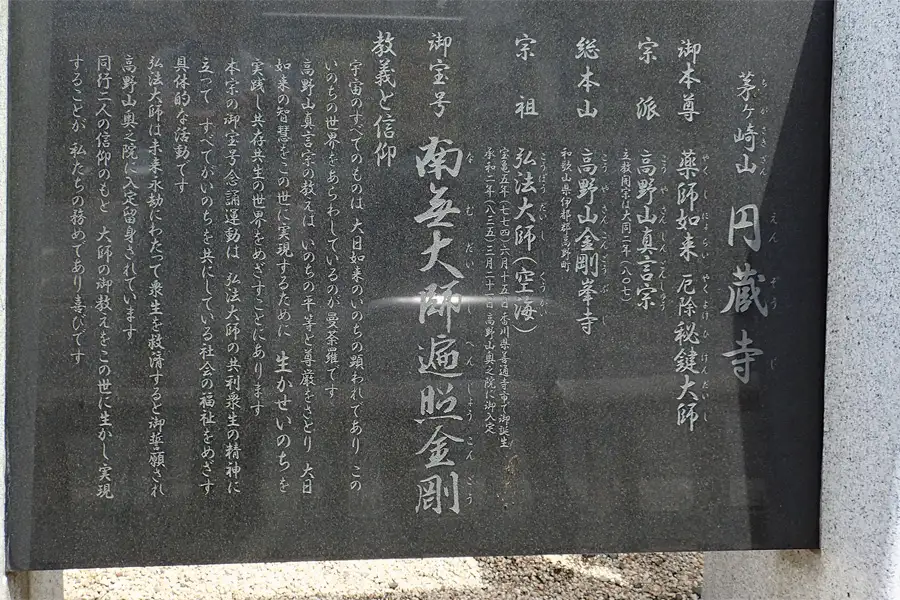 茅ヶ崎山 円蔵寺
御本尊 薬師如来 厄除秘鍵大師
宗派 高野山真言宗
立教開宗は大同二年(八〇七)
総本山 高野山金剛峯寺
和歌山県伊都郡高野町
宗祖 弘法大師(空海)
宝亀五年(七七四)六月十五日 香川県善通寺市で御誕生
承和二年(八三五)三月二十一日 高野山奥之院に御入定
御宝号 南無大師遍照金剛
教義と信仰
宇宙のすべてのものは 大日如来のいのちの顕われであり この
いのちの世界をあらわしているのが曼荼羅です
高野山真言宗の教えは いのちの平等と尊厳をさとり 大日
如来の智慧をこの世に実現するために 生かせいのちを
実践し共存共生の世界をめざすことにあります
本宗の御宝号念誦運動は 弘法大師の共利衆生の精神に
立って すべてがいのちを共にしている社会の福祉をめざす
具体的な活動です
弘法大師は未来永劫にわたって衆生を救済すると御誓願され
高野山奥之院に入定留身されています
同行二人の信仰のもと 大師の御教えをこの世に生かし 実現
することが 私たちの務めであり喜びです